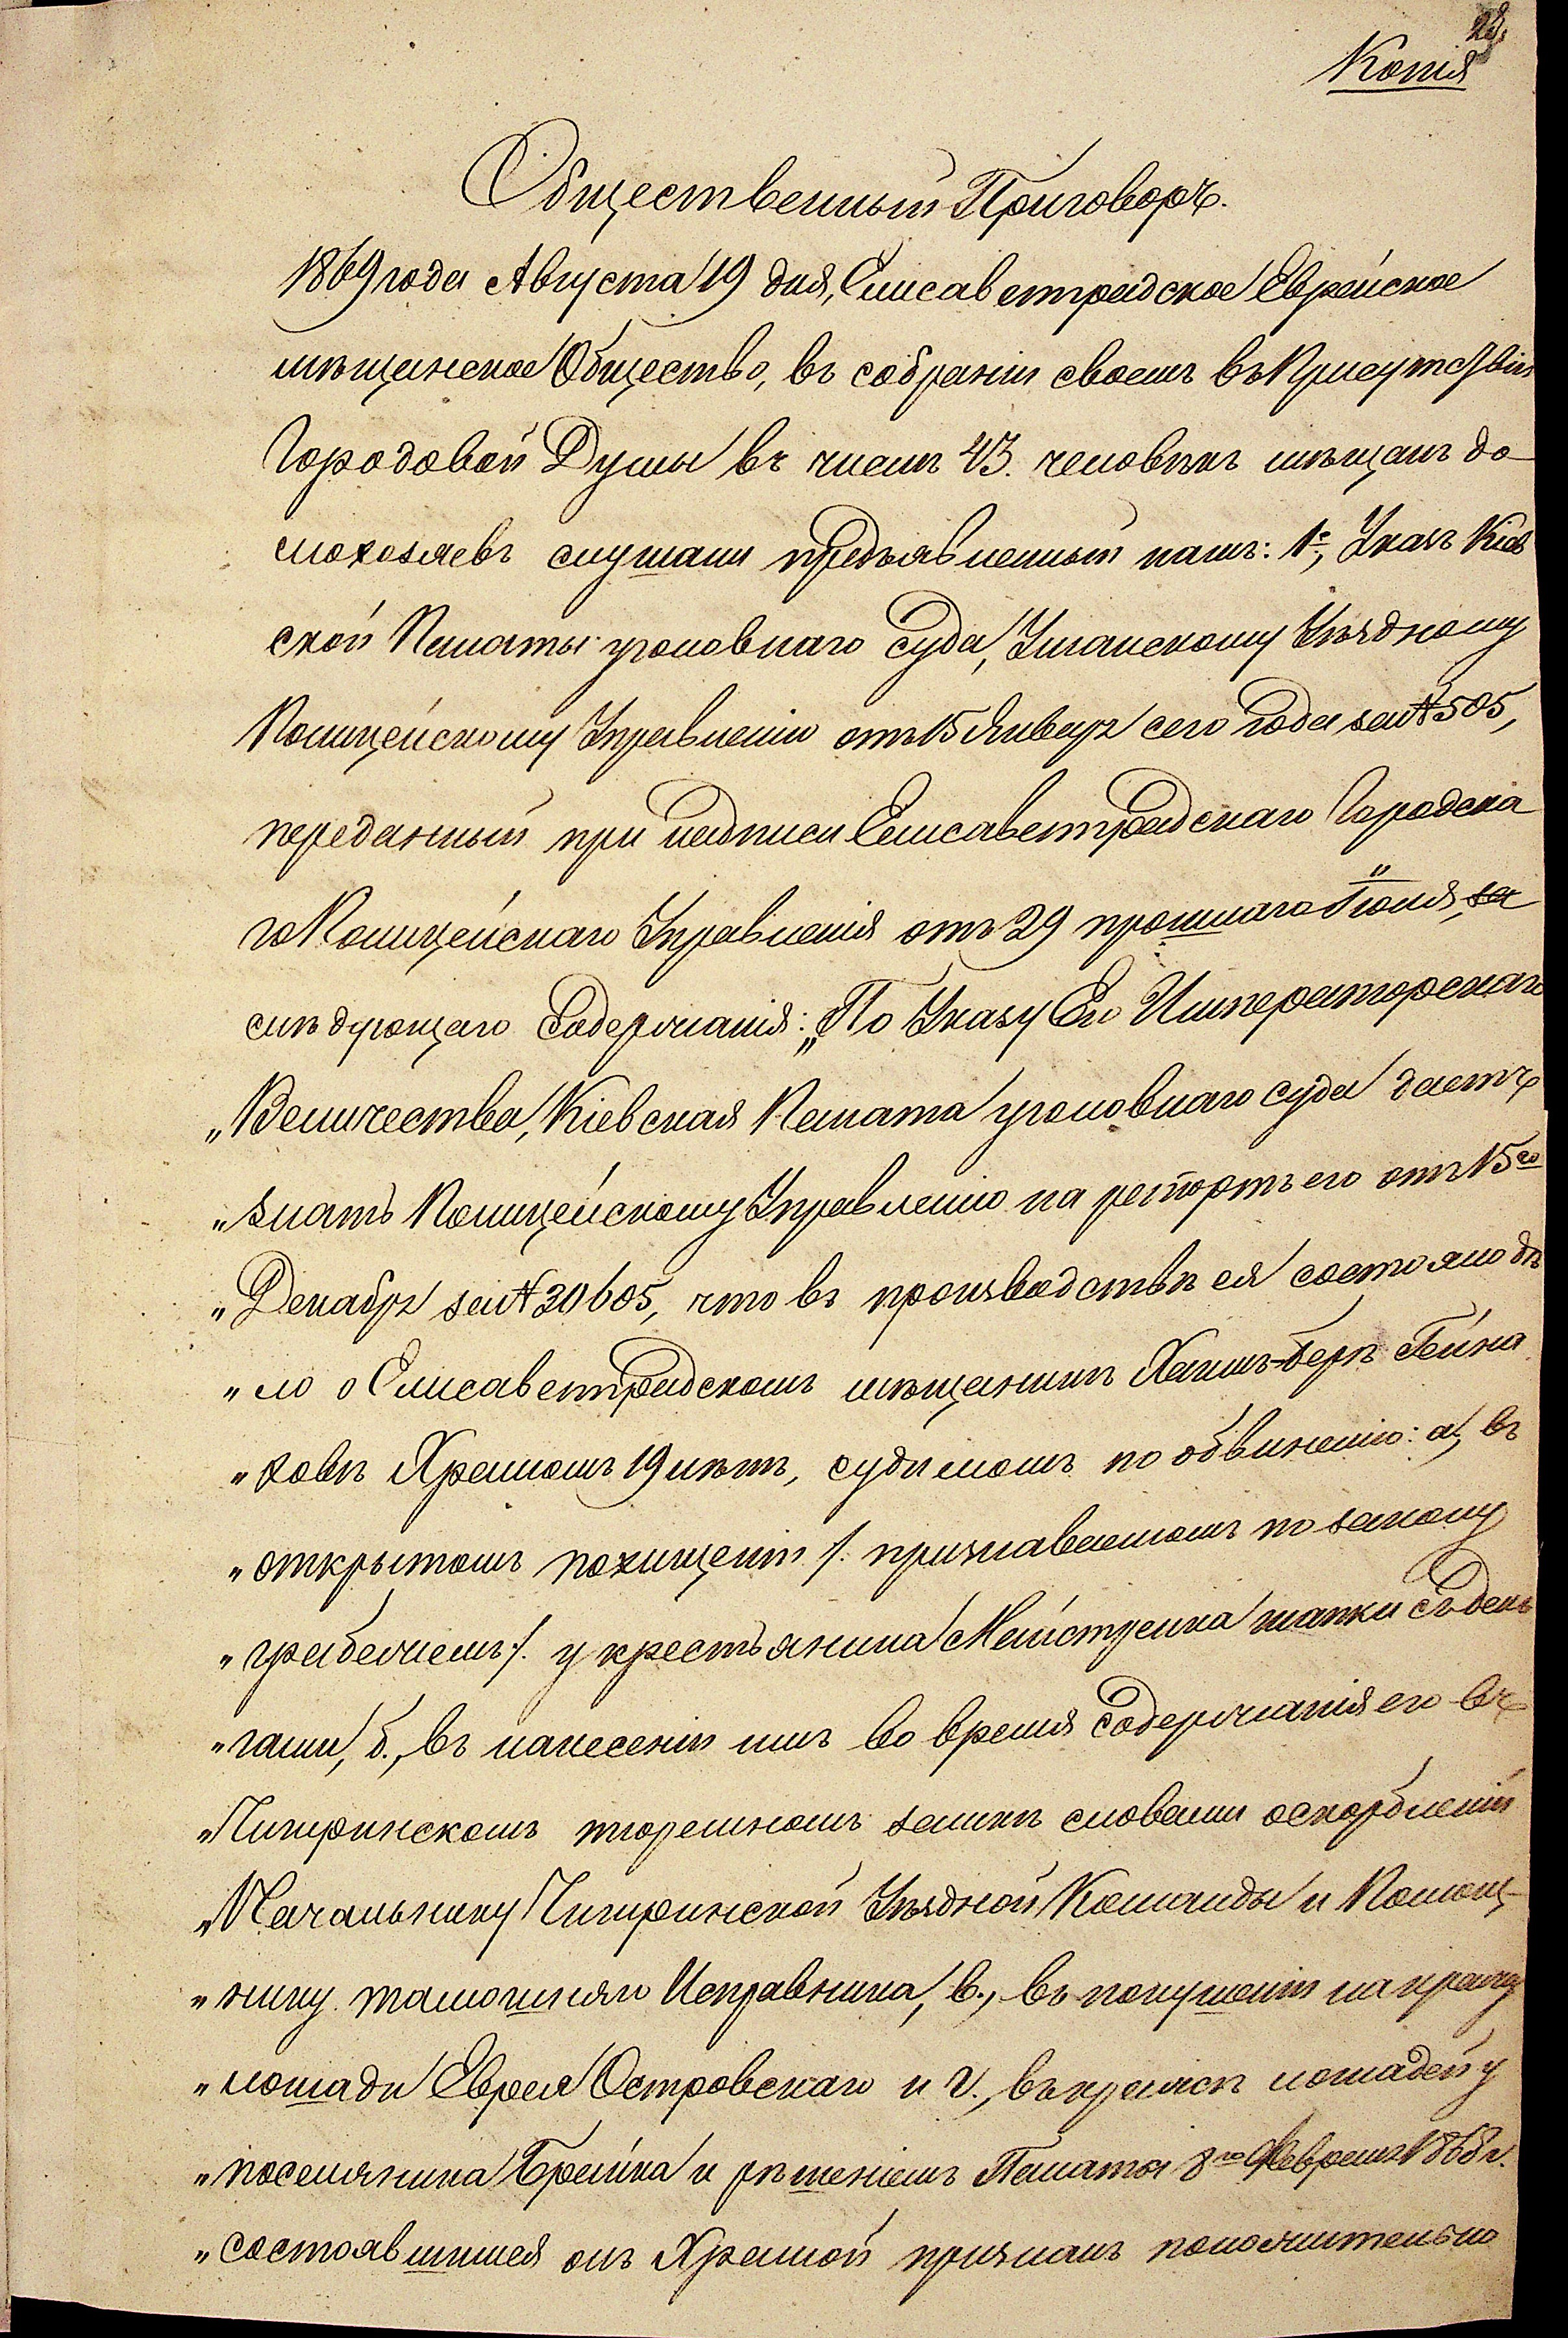 28.
Копія
Общественный Приговоръ.
1869 года Августа 19 дня, Елисаветградское Еврейское
мѣщанское Общество, въ собраніи своемъ въ Присутствіи
Городовой Думы въ числѣ 43. человѣкъ мѣщанъ до-
мохозяевъ слушали предъявленный намъ: 1е, Указъ Кіев
ской Палаты уголовнаго Суда, Уманскому Уѣздному
Полицейскому Управленію отъ 15 Января сего года за № 505,
переданный при надписи Елисаветградскаго Городска
го Полицейскаго Управленія отъ 29 прошлаго Іюля, за
слѣдующаго Содержанія: „По Указу Его Императорскаго
„Величества, Кіевская Палата уголовнаго суда даетъ
„знать Полицейскому Управленію на репортъ его отъ 15го
„Декабря за № 20605, что въ производствѣ ея состояло дѣ
„ло о Елисаветградскомъ мѣщанинѣ Хаимъ-Берѣ Гейна
„ховѣ Храмомъ 19 лѣтъ, судимомъ по обвиненію: а, въ
„открытомъ похищеніи /. признаваемомъ по закону
„грабежемъ /. у крестьянина Майстренка шапки съ день
„гами, б., въ нанесеніи имъ во время Содержанія его въ
„Чигиринскомъ тюремномъ замкѣ словами оскорбленій
„Начальнику Чигиринской Уѣздной Команды и Помощ-
„нику тамошняго Исправника, в., въ покушеніи на кражу
„лошади Еврея Островскаго и г., въ кражѣ лошадей у
„поселянина Брайка и рѣшеніемъ Палаты 8го Февраля 1868 г.
„состоявшимся онъ Храмой признанъ положительно